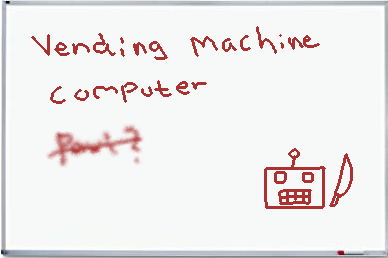 Vending Machine
Computer